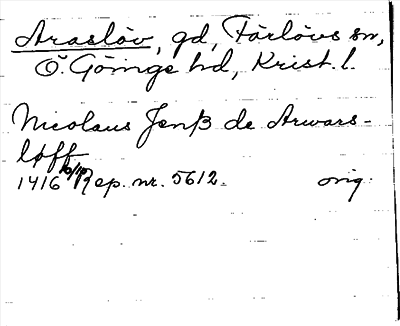 Araslöv, gd, Färlövs sn,
Ö. Göinge hd, Krist. l.
Nicolaus Jenß de Arwars-
løff
1416 10/10 Rep. nr. 5612. orig.